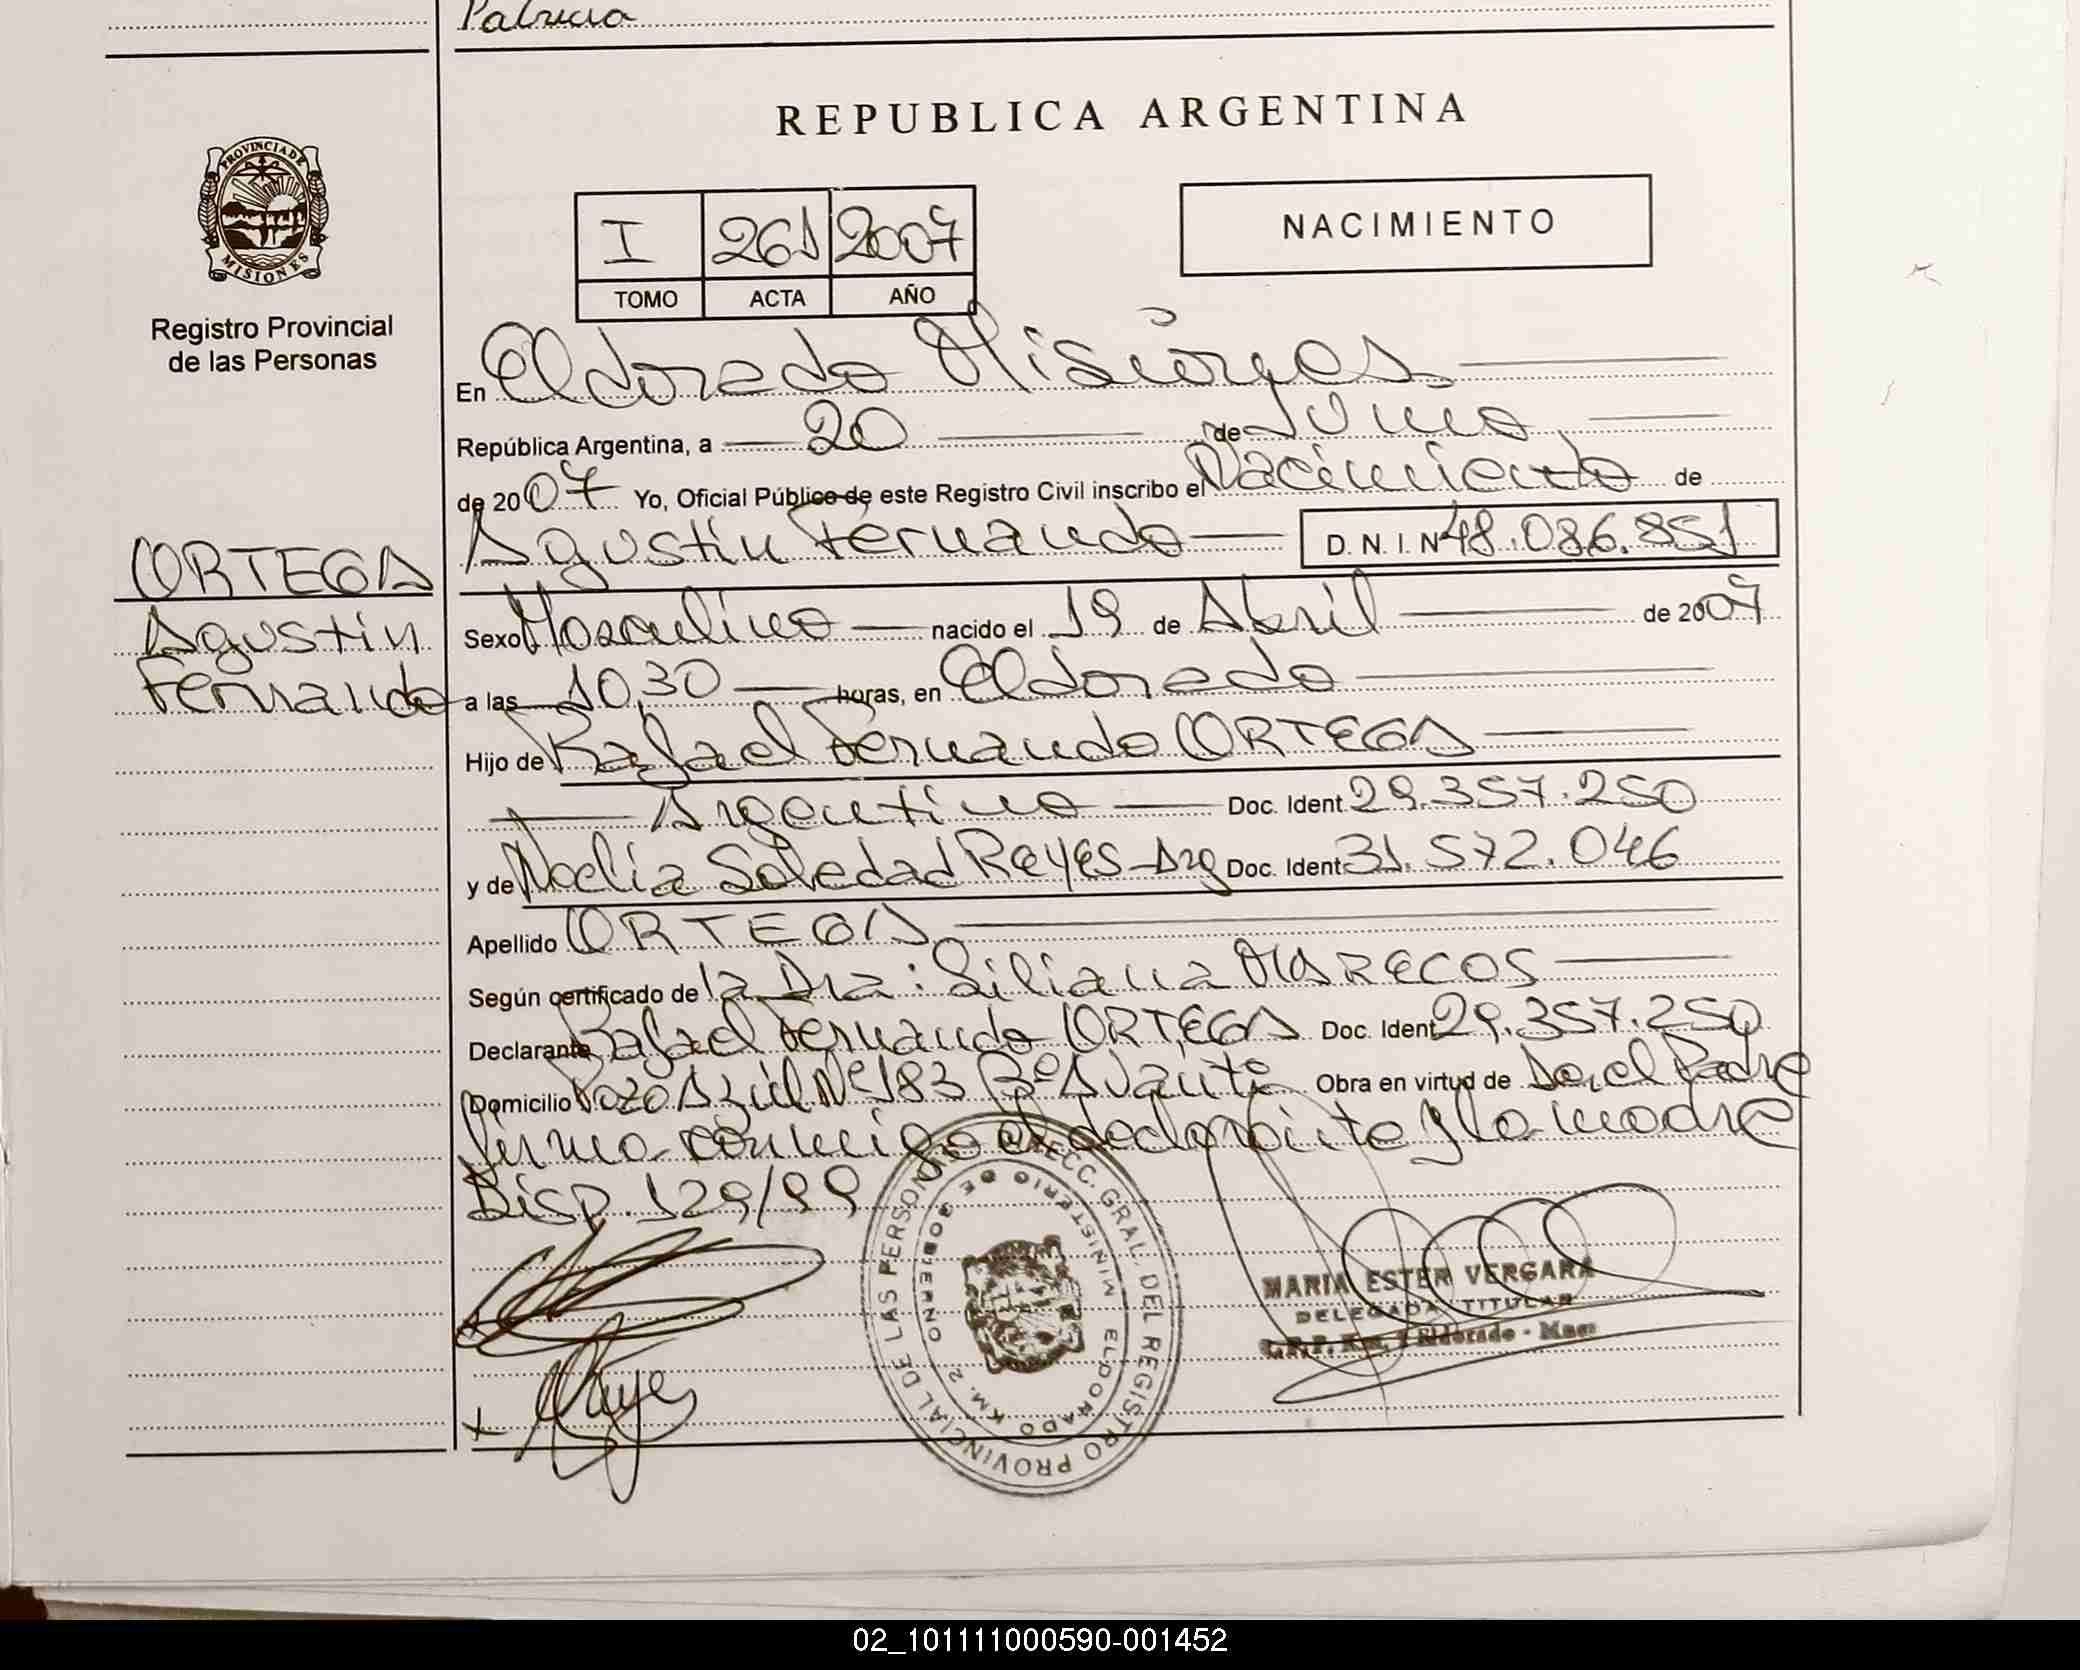 Patricia
REPUBLICA ARGENTINA
PROVINCIA DE
MISIONES
Registro Provincial
de las Personas
I 261 2007
TOMO ACTA AÑO
NACIMIENTO
En Eldorado Misiones
República Argentina, a 20 de Junio
de 2007 Yo, Oficial Público de este Registro Civil inscribo el Nacimiento de
Agustin Fernando D.N.I. Nº 48.086.851
ORTEGA
Agustin
Fernando
Sexo Masculino nacido el 19 de Abril de 2007
a las 10,30 horas, en Eldorado
Hijo de Rafael Fernando ORTEGA
Argentino Doc. Ident. 29.357.250
y de Noelia Soledad Reyes Arg Doc. Ident. 31.572.046
Apellido ORTEGA
Según certificado de la Dra: Liliana MARECOS
Declarante Rafael Fernando ORTEGA Doc. Ident. 29.357.250
Domicilio Pozo Azúl Nº 183 Bº Avanti Obra en virtud de Ser el Padre
firma conmigo el declarante y la madre
Disp. 129/99
DIRECC. GRAL. DEL REGISTRO PROVINCIAL DE LAS PERSONAS
MINISTERIO DE GOBIERNO
ELDORADO KM. 2
MARIA ESTER VERGARA
DELEGADA TITULAR
Eldorado - Mnes
X Reyes
02_101111000590-001452